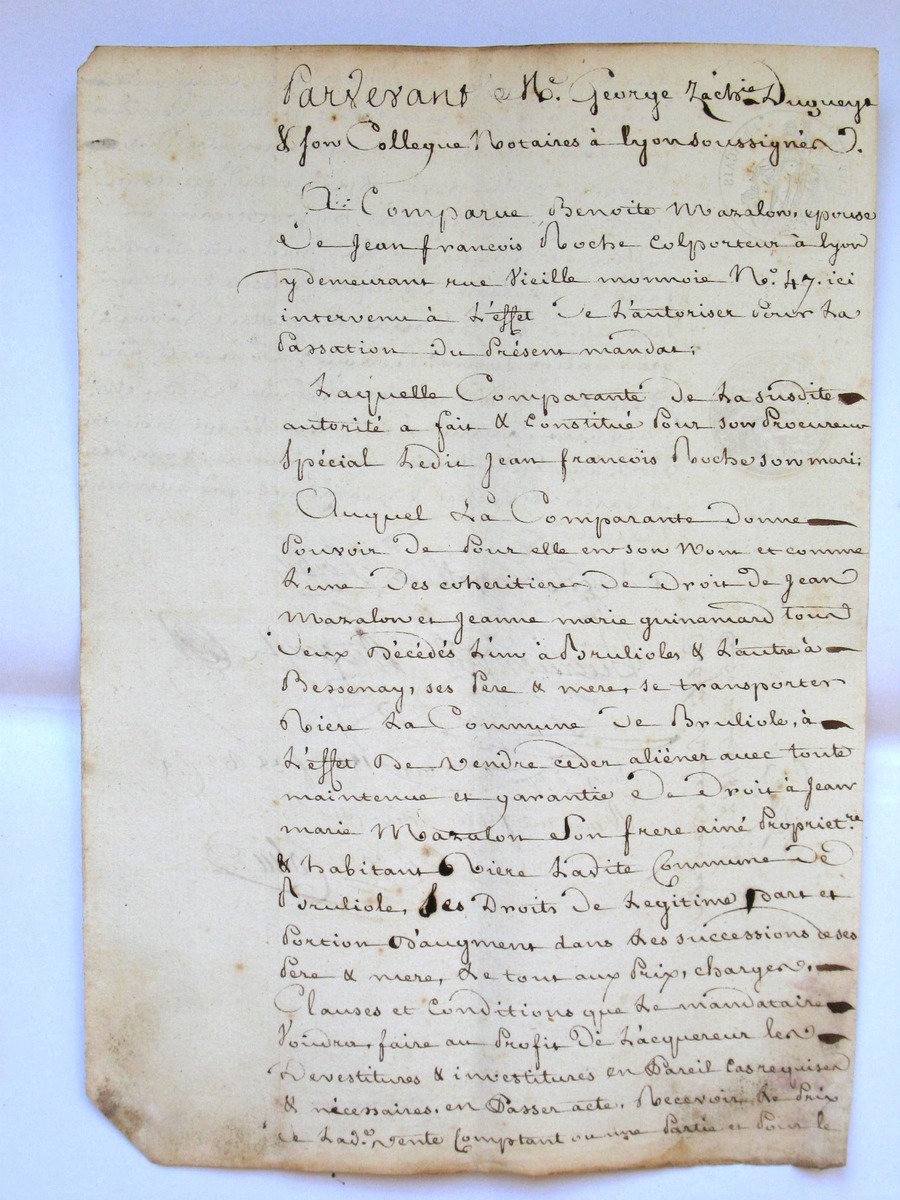 Pardevant Me. George Zach.ie Dugueyt
& son Collegue Notaires à Lyon soussignés.
A Comparue Benoite Mazalon, epouse
De Jean françois Roche colporteur à Lyon
y demeurant rue Vieille monnoie No. 47. ici
intervenu à L'effet De L'autoriser Pour La
Passation Du Présent mandat;
Laquelle Comparante De La susdite
autorité a fait & Constitué Pour son Procureur
Spécial Ledit Jean françois Roche son mari;
Auquel La Comparante donne
Pouvoir De Pour elle en son Nom et comme
L'une Des coheritieres De Droit De Jean
Mazalon et Jeanne marie guinamard tous
Deux Décédés L'un à Brulioles & L'autre à
Bessenay, ses Pere & mere, se transporter
Riere La Commune De Bruliole, à
L'effet De Vendre ceder aliéner avec toute
maintenue et garantie De Droit à Jean
marie Mazalon Son frere ainé Propriet.re
& habitant Riere Ladite Commune De
Bruliole, Les Droits De Legitime part et
Portion D'augment dans Les successions de ses
Pere & mere, Le tout aux Prix, charges,
Clauses et Conditions que Le mandataire
Voudra, faire au Profit De L'acquereur les
Devestitures & investitures en Pareil Cas requises
& nécessaires, en Passer acte, Recevoir Le Prix
De Lad.e Vente Comptant ou une Partie et Pour le